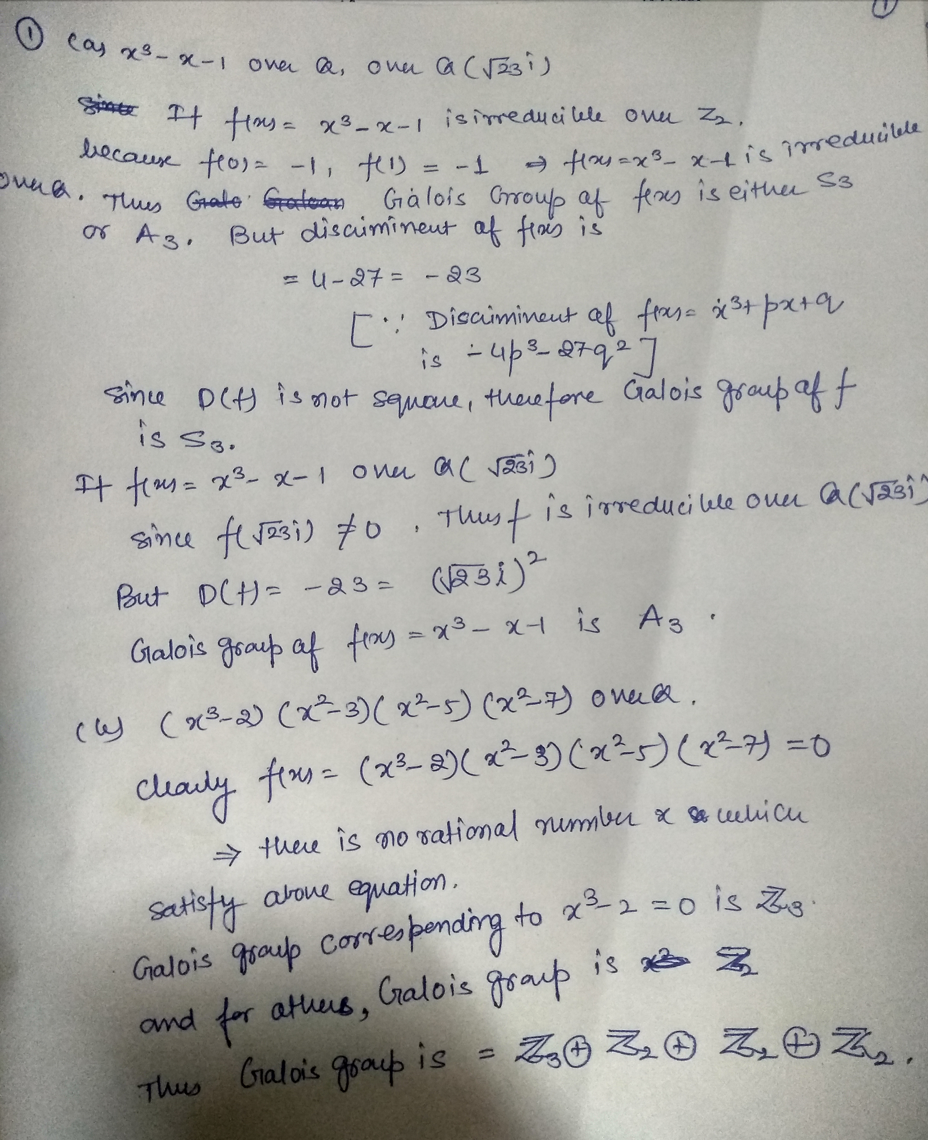 ① (a) x³ - x - 1 over Q, over Q(√23 i)
If f(x) = x³ - x - 1 is irreducible over Z₂.
because f(0) = -1, f(1) = -1 ⇒ f(x) = x³ - x - 1 is irreducible
over Q. Thus Galois Group of f(x) is either S₃
or A₃. But discriminent of f(x) is
= 4 - 27 = - 23
[∵ Discriminent of f(x) = x³ + px + q
is - 4p³ - 27q²]
Since D(f) is not square, therefore Galois group of f
is S₃.
If f(x) = x³ - x - 1 over Q(√23 i)
since f(√23 i) ≠ 0. Thus f is irreducible over Q(√23 i)
But D(f) = - 23 = (√23 i)²
Galois group of f(x) = x³ - x - 1 is A₃.
(b) (x³-2)(x²-3)(x²-5)(x²-7) over Q.
Clearly f(x) = (x³-2)(x²-3)(x²-5)(x²-7) = 0
⇒ there is no rational number x which
satisfy above equation.
Galois group corresponding to x³-2 = 0 is ℤ₃.
and for others, Galois group is ℤ₂
Thus Galois group is = ℤ₃ ⊕ ℤ₂ ⊕ ℤ₂ ⊕ ℤ₂.